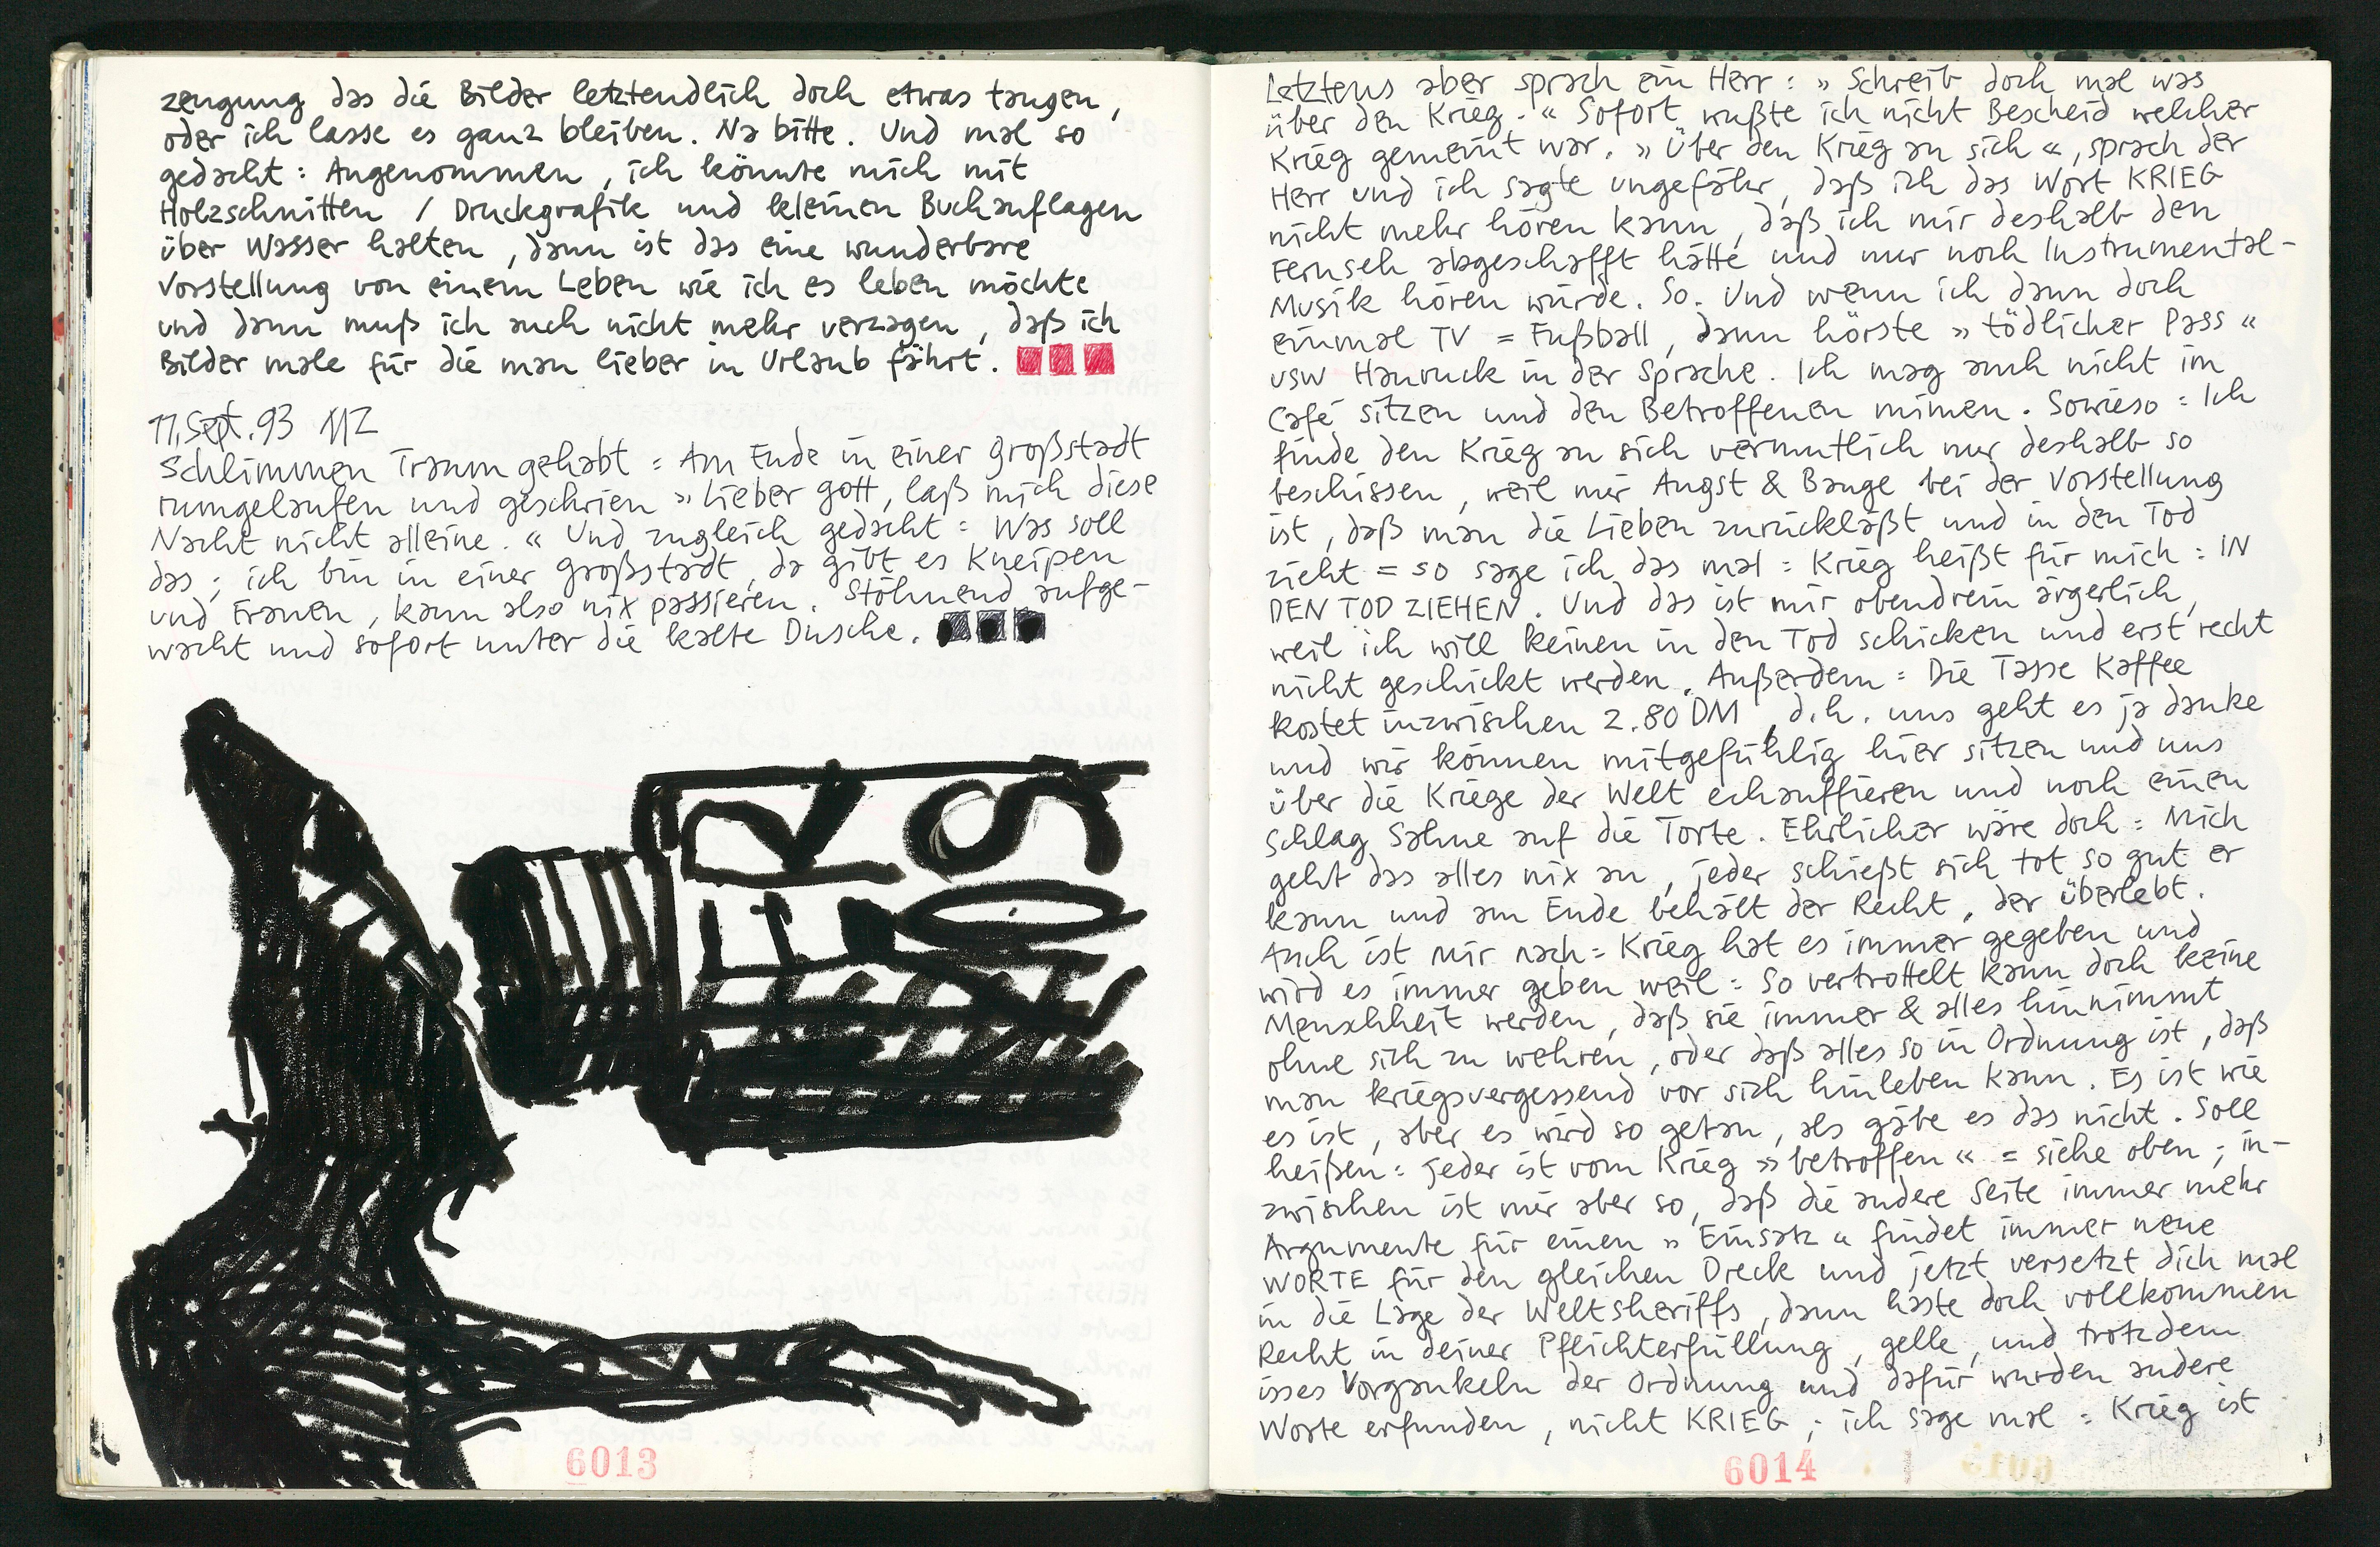 zeugung das die Bilder letztendlich doch etwas taugen,
oder ich lasse es ganz bleiben. Na bitte. Und mal so
gedacht: Angenommen, ich könnte mich mit
Holzschnitten / Druckgrafik und kleinen Buchauflagen
über Wasser halten, dann ist das eine wunderbare
Vorstellung von einem Leben wie ich es leben möchte
und dann muß ich auch nicht mehr verzagen, daß ich
Bilder male für die man lieber in Urlaub fährt.
11. Sept. 93 MZ
Schlimmen Traum gehabt: Am Ende in einer Großstadt
rumgelaufen und geschrien »Lieber Gott, laß mich diese
Nacht nicht alleine.« Und zugleich gedacht: Was soll
das; ich bin in einer Großstadt, da gibt es Kneipen
und Frauen, kann also nix passieren. Stöhnend aufge-
wacht und sofort unter die kalte Dusche.
6013
Letztens aber sprach ein Herr: »Schreib doch mal was
über den Krieg.« Sofort wußte ich nicht Bescheid welcher
Krieg gemeint war. »Über den Krieg an sich«, sprach der
Herr und ich sagte ungefähr, daß ich das Wort KRIEG
nicht mehr hören kann, daß ich mir deshalb den
Fernseh abgeschafft hätte und nur noch Instrumental-
Musik hören würde. So. Und wenn ich dann doch
einmal TV = Fußball, dann hörste »tödlicher Pass«
usw Hauruck in der Sprache. Ich mag auch nicht im
Café sitzen und den Betroffenen mimen. Sowieso: Ich
finde den Krieg an sich vermutlich nur deshalb so
beschissen, weil mir Angst & Bange bei der Vorstellung
ist, daß man die Lieben zurückläßt und in den Tod
zieht = so sage ich das mal: Krieg heißt für mich: IN
DEN TOD ZIEHEN. Und das ist mir obendrein ärgerlich,
weil ich will keinen in den Tod schicken und erst recht
nicht geschickt werden. Außerdem: Die Tasse Kaffee
kostet inzwischen 2.80 DM, d.h. uns geht es ja danke
und wir können mitgefühlig hier sitzen und uns
über die Kriege der Welt echauffieren und noch einen
Schlag Sahne auf die Torte. Ehrlicher wäre doch: Mich
geht das alles nix an, jeder schießt sich tot so gut er
kann und am Ende behält der Recht, der überlebt.
Auch ist mir nach: Krieg hat es immer gegeben und
wird es immer geben weil: So vertrottelt kann doch keine
Menschheit werden, daß sie immer & alles hinnimmt
ohne sich zu wehren, oder daß alles so in Ordnung ist, daß
man kriegsvergessend vor sich hinleben kann. Es ist wie
es ist, aber es wird so getan, als gäbe es das nicht. Soll
heißen: jeder ist vom Krieg »betroffen« = siehe oben; in-
zwischen ist mir aber so, daß die andere Seite immer mehr
Argumente für einen »Einsatz« findet immer neue
WORTE für den gleichen Dreck und jetzt versetzt dich mal
in die Lage der Weltsheriffs, dann haste doch vollkommen
Recht in deiner Pflichterfüllung, gelle, und trotzdem
isses Vorgaukeln der Ordnung und dafür wurden andere
Worte erfunden, nicht KRIEG; ich sage mal: Krieg ist
6014